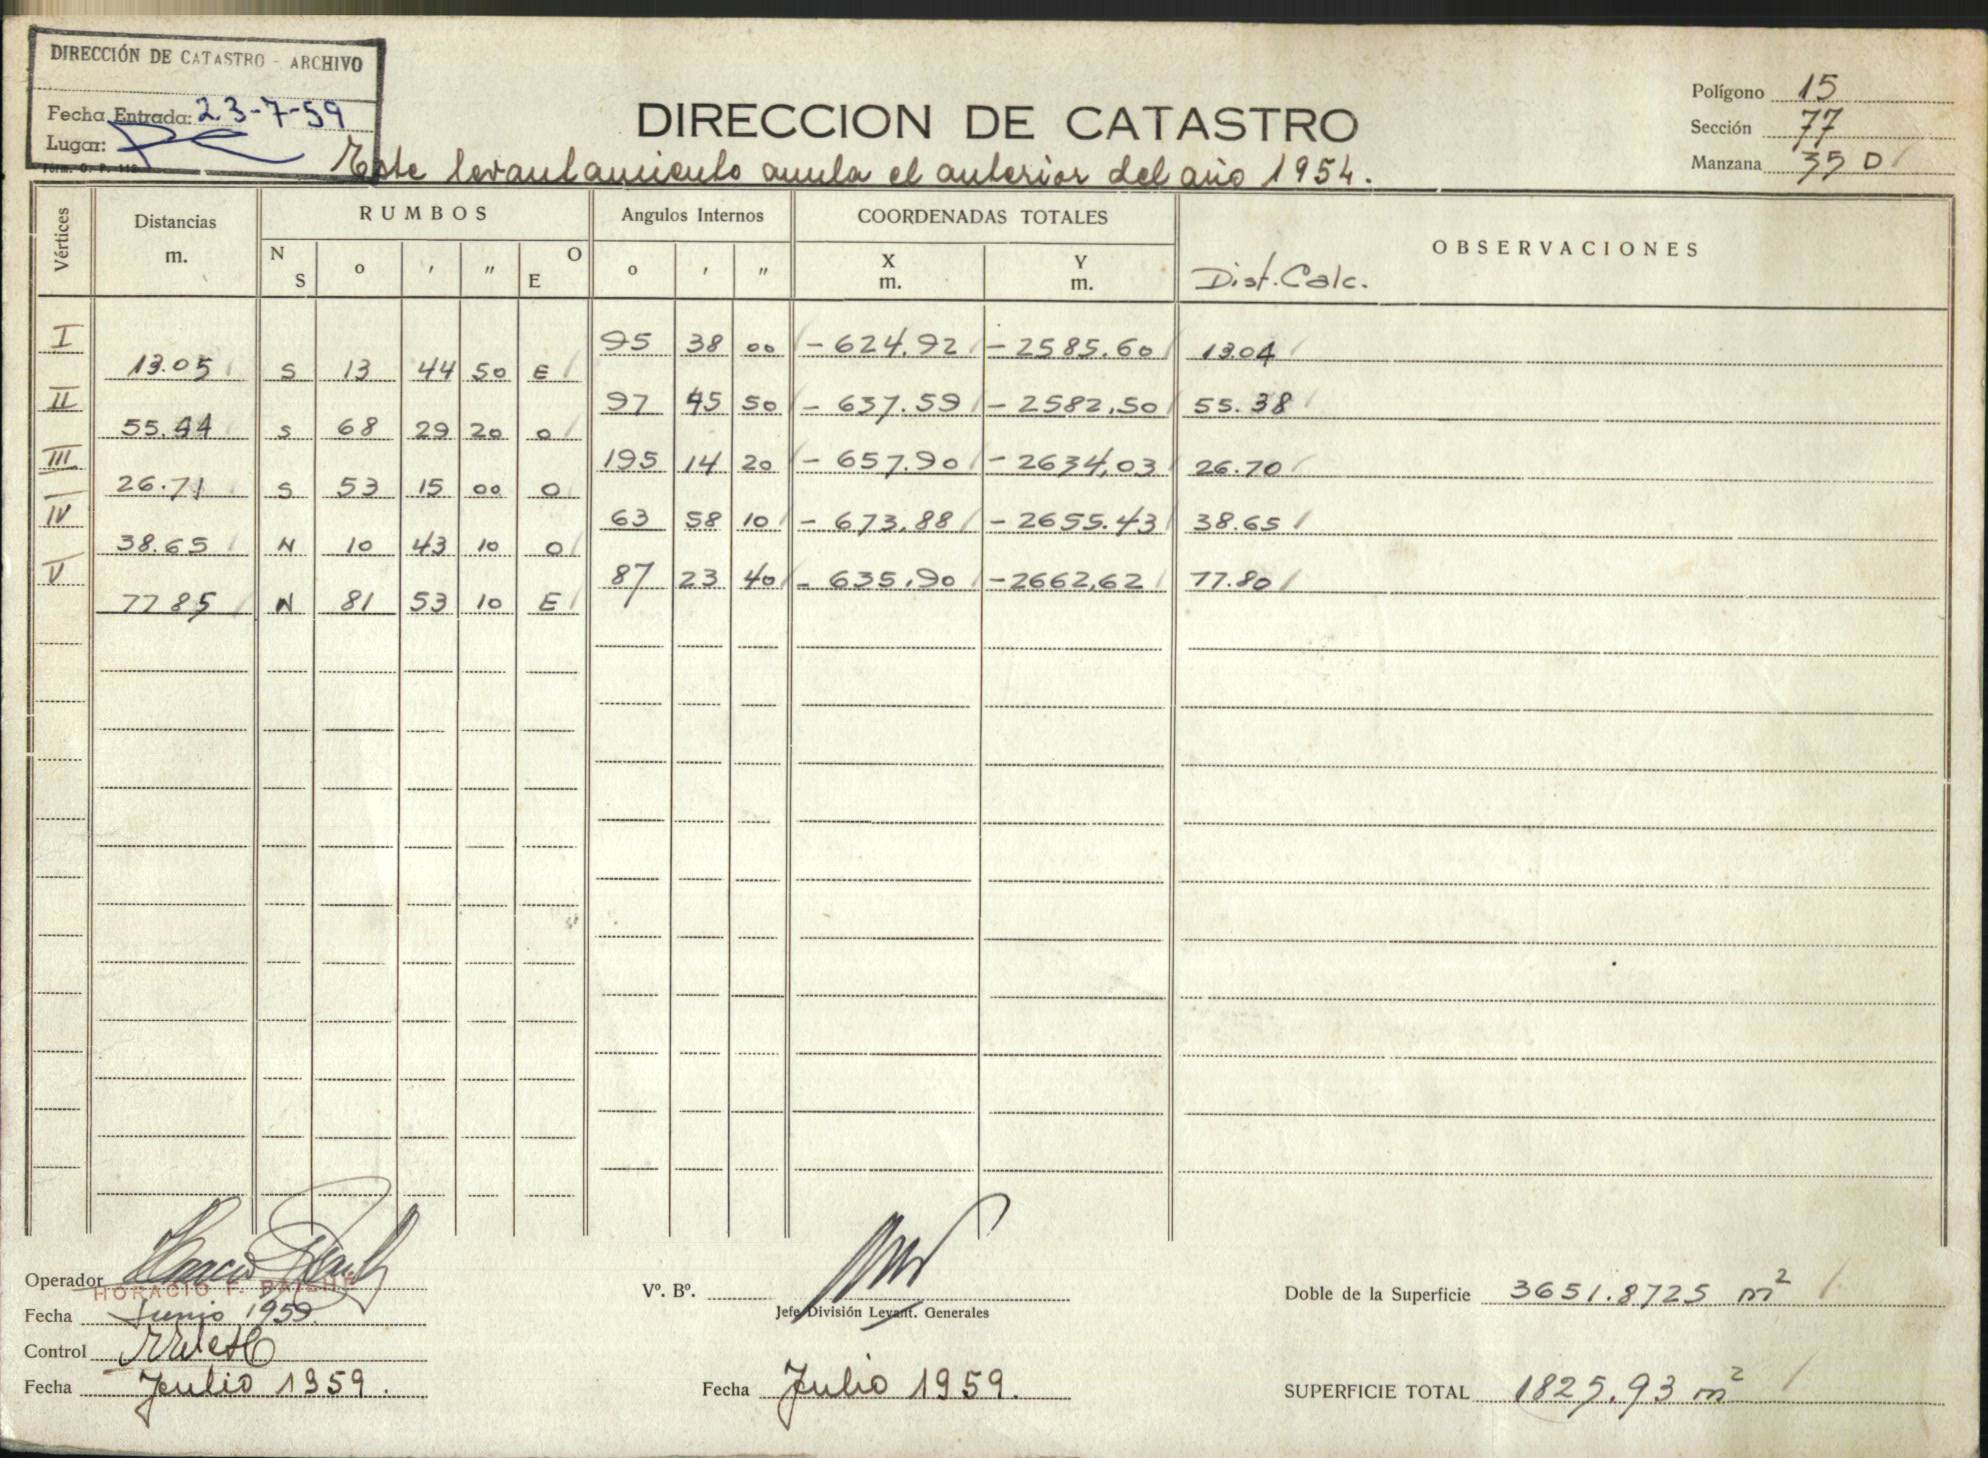 DIRECCIÓN DE CATASTRO - ARCHIVO
Fecha Entrada: 23-7-59
Lugar:
Form. O. P. 113
DIRECCION DE CATASTRO
Este levantamiento anula el anterior del año 1954.
Polígono 15
Sección 77
Manzana 35 D
Vértices Distancias m. RUMBOS Angulos Internos COORDENADAS TOTALES OBSERVACIONES
N S o ' " O E o ' " X m. Y m. Dist. Calc.
I 95 38 00 -624.92 -2585.60 13.04
13.05 S 13 44 50 E
II 97 45 50 -637.59 -2582.50 55.38
55.44 S 68 29 20 O
III 195 14 20 -657.90 -2634,03 26.70
26.71 S 53 15 00 O
IV 63 58 10 -673.88 -2655.43 38.65
38.65 N 10 43 10 O
V 87 23 40 -635.90 -2662,62 77.80
77.85 N 81 53 10 E
Operador
HORACIO F.
Fecha Junio 1959.
Control
Fecha Julio 1959.
Vº. Bº.
Jefe División Levant. Generales
Fecha Julio 1959.
Doble de la Superficie 3651.8725 m²
SUPERFICIE TOTAL 1825.93 m²